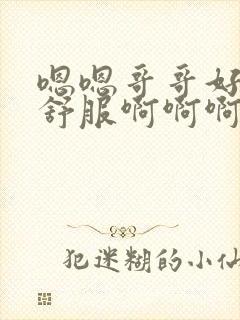 嗯嗯哥哥好
舒服啊啊啊
犯迷糊的小仙